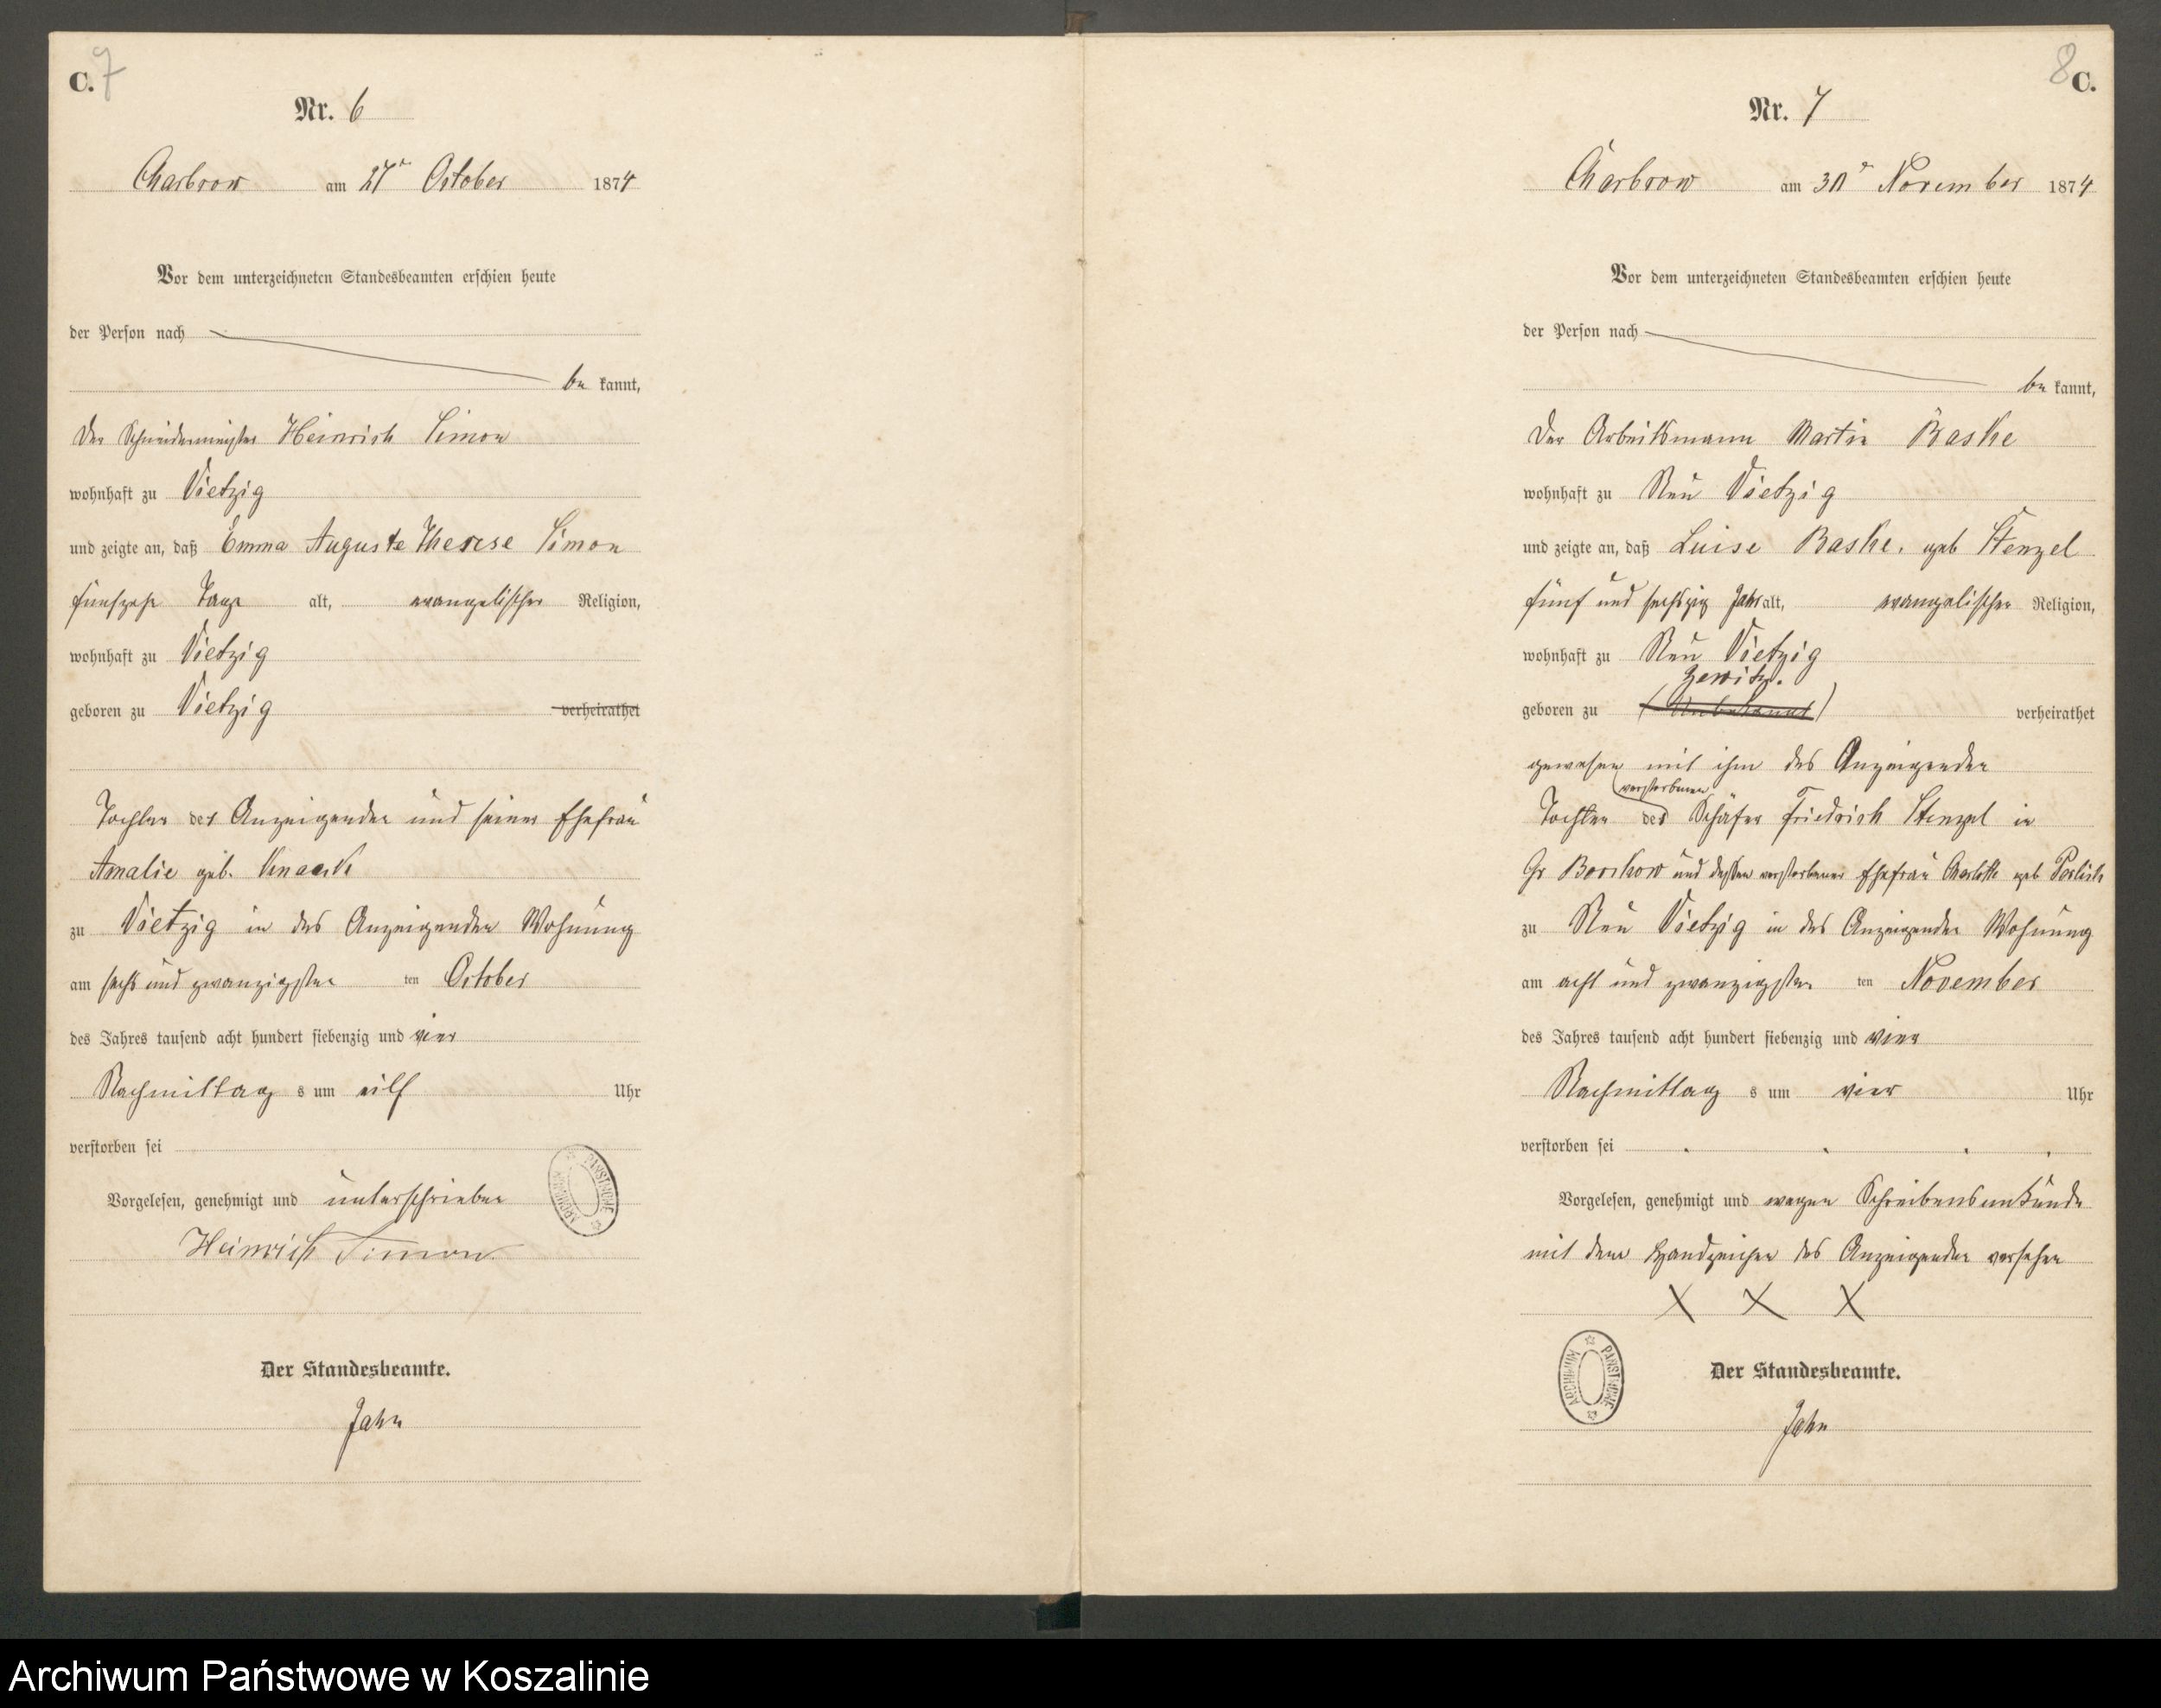 C. 7
Nr. 6
Charbrow am 27ⁿ October 1874
Vor dem unterzeichneten Standesbeamten erschien heute
der Person nach
be kannt,
Der Schneidermeister Heinrich Simon
wohnhaft zu Vietzig
und zeigte an, daß Emma Auguste Therese Simon
fünfzehn Tage alt, evangelischer Religion,
wohnhaft zu Vietzig
geboren zu Vietzig verheirathet
Tochter des Anzeigenden und seiner Ehefrau
Amalie geb. Knaack
zu Vietzig in des Anzeigenden Wohnung
am sechs und zwanzigsten ten October
des Jahres tausend acht hundert siebenzig und vier
Nachmittag s um eilf Uhr
verstorben sei
Vorgelesen, genehmigt und unterschrieben
Heinrich Simon
ARCHIWUM PAŃSTWOWE
Der Standesbeamte.
Jahn
8 C.
Nr. 7
Charbrow am 30ⁿ November 1874
Vor dem unterzeichneten Standesbeamten erschien heute
der Person nach
be kannt,
Der Arbeitsmann Martin Baske
wohnhaft zu Neu Vietzig
und zeigte an, daß Luise Baske, geb Stenzel
fünf und sechszig Jahr alt, evangelischer Religion,
wohnhaft zu Neu Vietzig
Zewitz.
geboren zu (Unbekannt) verheirathet
gewesen mit ihm des Anzeigenden
verstorbenen
Tochter des Schäfer Friedrich Stenzel in
Gr Borckow und dessen verstorbener Ehefrau Charlotte geb
zu Neu Vietzig in des Anzeigenden Wohnung
am acht und zwanzigsten ten November
des Jahres tausend acht hundert siebenzig und vier
Nachmittag s um vier Uhr
verstorben sei
Vorgelesen, genehmigt und wegen Schreibensunkunde
mit dem Handzeichen des Anzeigenden versehen
X X X
ARCHIWUM PAŃSTWOWE
Der Standesbeamte.
Jahn
Archiwum Państwowe w Koszalinie